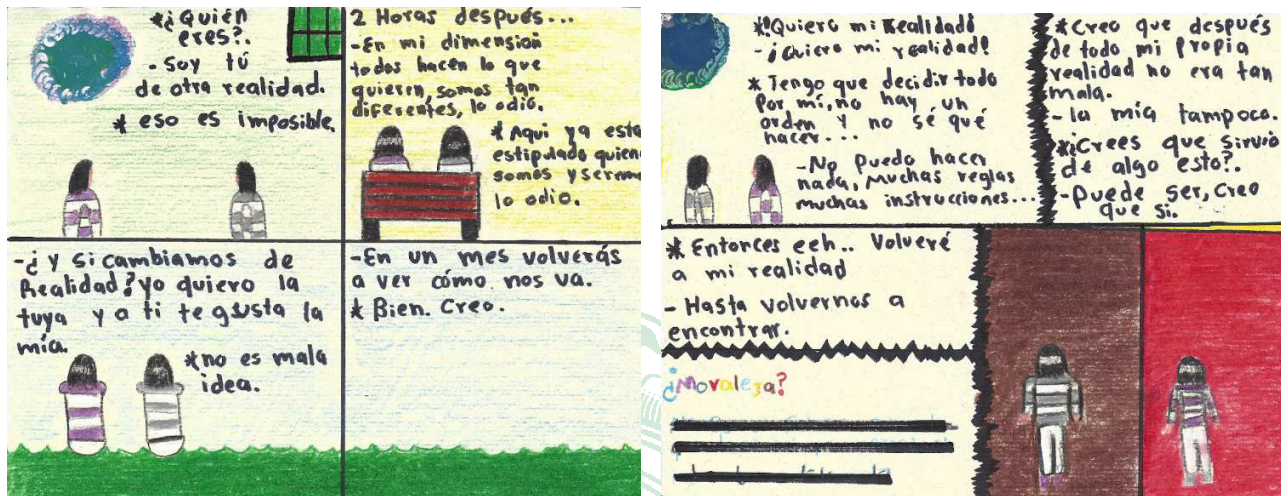 *¿Quién
eres?.
- Soy tú
de otra realidad.
* eso es imposible.
2 Horas después...
-En mi dimension
todos hacen lo que
quieren, somos tan
diferentes, lo odio.
* Aqui ya esta
estipulado quien
somos y serem
lo odio.
-¿Y si cambiamos de
Realidad? yo quiero la
tuya y a ti te gusta la
mía.
*no es mala
idea.
-En un mes volverás
a ver cómo nos va.
* Bien. Creo.
*¡Quiero mi Realidad!
- ¡Quiero mi realidad!
* Tengo que decidir todo
por mí, no hay un
orden y no sé qué
hacer...
-No puedo hacer
nada, muchas reglas
muchas instrucciones...
*Creo que después
de todo mi propia
realidad no era tan
mala.
- la mía tampoco.
*¿Crees que sirvió
de algo esto?.
-Puede ser, creo
que si.
* Entonces eeh.. Volveré
a mi realidad
- Hasta volvernos a
encontrar.
¿Moraleja?